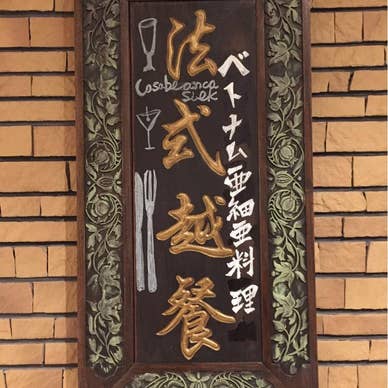 ベトナム亜細亜料理
法式越餐
Casablanca
Silk